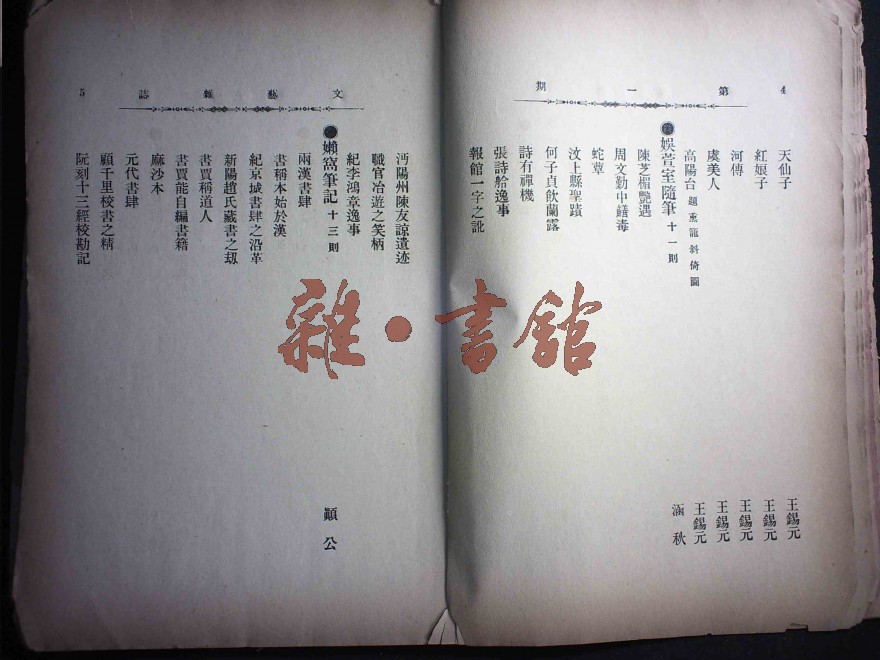 4 第一期
天仙子 王錫元
紅娘子 王錫元
河傳 王錫元
虞美人 王錫元
高陽台 題熏籠斜倚圖 王錫元
娛萱室隨筆 十一則 涵秋
陳芝楣艷遇
周文勤中鱔毒
蛇蕈
汶上縣聖蹟
何子貞飲蘭露
詩有禪機
張詩舲逸事
報館一字之訛
文藝雜誌 5
沔陽州陳友諒遺迹
職官冶遊之笑柄
紀李鴻章逸事
嬾窩筆記 十三則 顚公
兩漢書肆
書稱本始於漢
紀京城書肆之沿革
新陽趙氏藏書之刼
書賈稱道人
書賈能自編書籍
麻沙本
元代書肆
顧千里校書之精
阮刻十三經校勘記
雜·書館